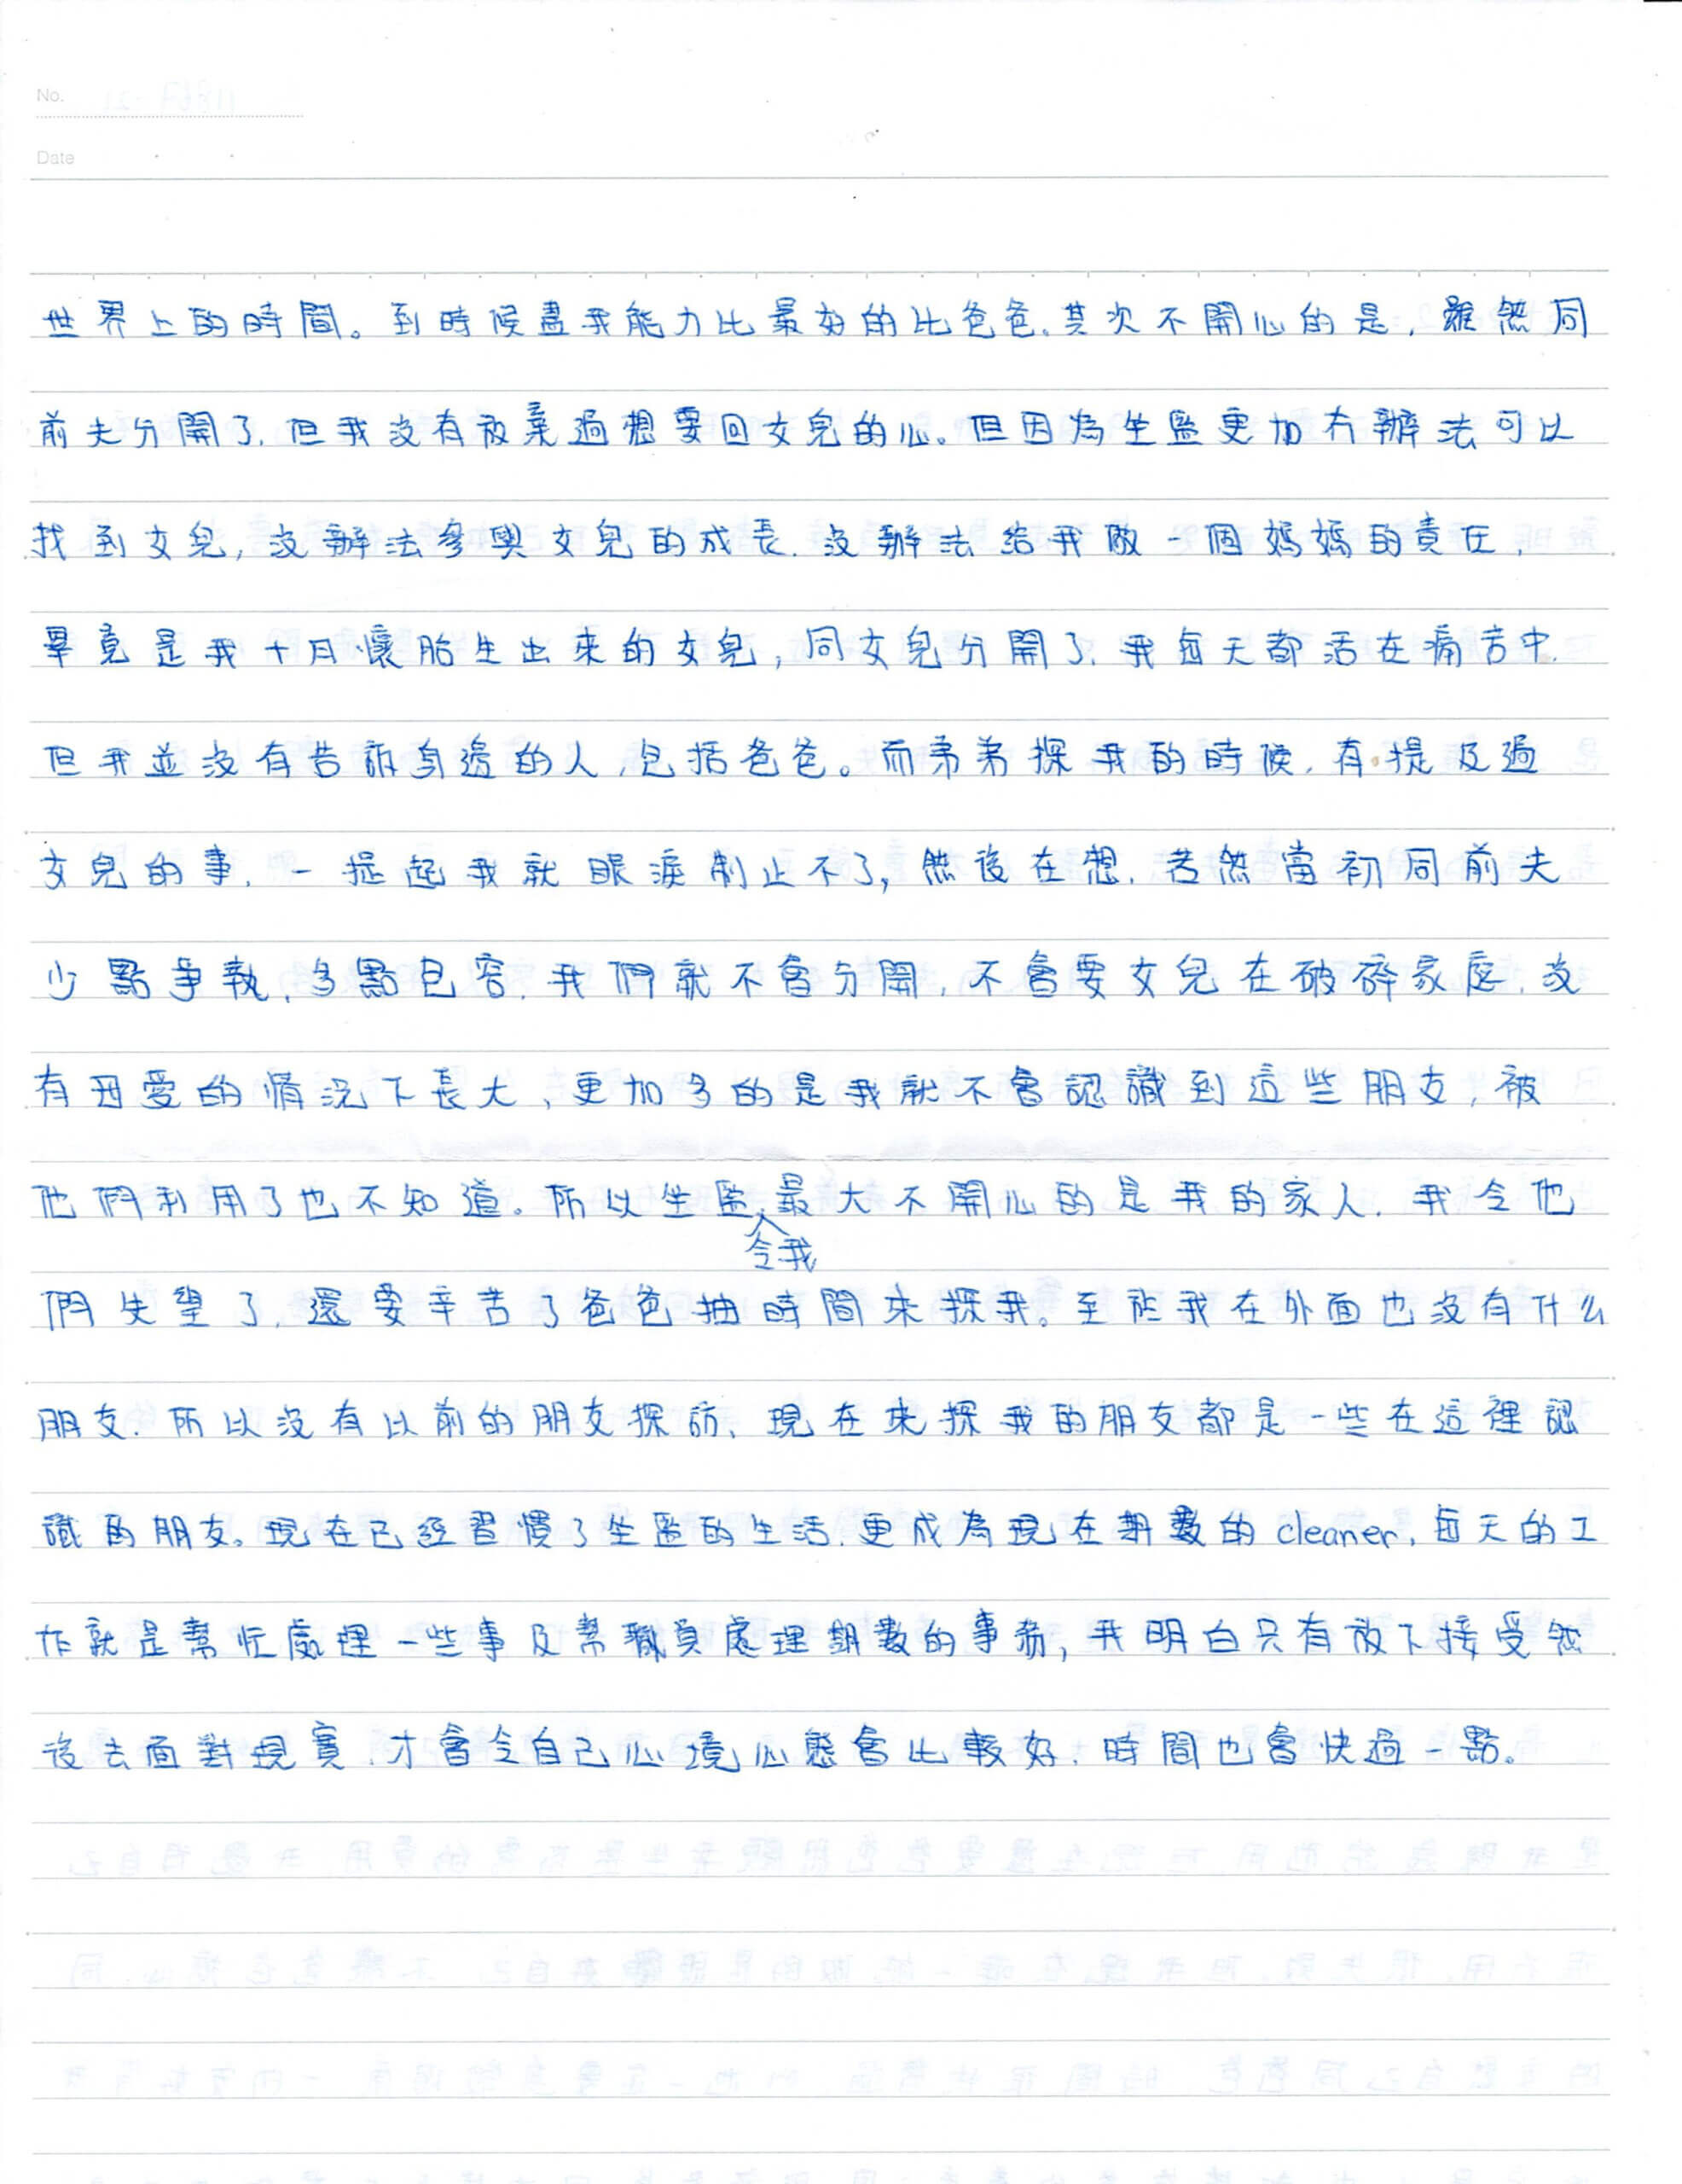 No.
Date
世界上的時間。到時候盡我能力比最好的比爸爸.其次不開心的是,雖然同
前夫分開了.但我沒有放棄過想要回女兒的心。但因為坐監更加冇辦法可以
找到女兒,沒辦法參與女兒的成長.沒辦法給我做一個媽媽的責任,
畢竟是我十月懷胎生出來的女兒,同女兒分開了.我每天都活在痛苦中.
但我並沒有告訴身邊的人,包括爸爸。而弟弟探我的時候.有提及過
女兒的事.一提起我就眼淚制止不了,然後在想.若然當初同前夫
少點爭執.多點包容.我們就不會分開,不會要女兒在破碎家庭.沒
有母愛的情況下長大、更加多的是我就不會認識到這些朋友,被
他們利用了也不知道。所以坐監,令我最大不開心的是我的家人.我令他
們失望了.還要辛苦了爸爸抽時間來探我。至於我在外面也沒有什么
朋友.所以沒有以前的朋友探訪、現在來探我的朋友都是一些在這裡認
識的朋友。現在已經習慣了坐監的生活.更成為現在期數的cleaner,每天的工
作就是幫忙處理一些事及幫職員處理期數的事務,我明白只有放下接受然
後去面對現實.才會令自己心境心態會比較好.時間也會快過一點。